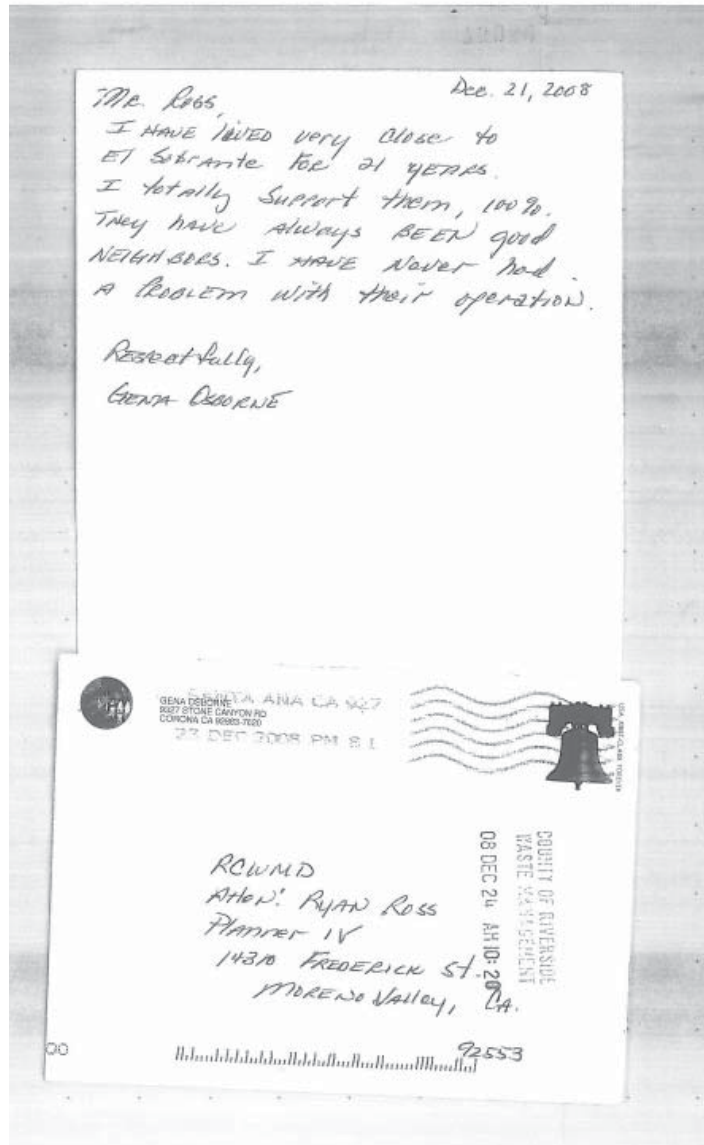 Dec. 21, 2008
Mr. Ross,
I HAVE lived very close to
El Sobrante FOR 21 YEARS.
I totally Support them, 100%.
They have always BEEN good
NEIGHBORS. I HAVE Never had
A PROBLEM with their operation.
Respectfully,
GENA OSBORNE
SANTA ANA CA 927
GENA OSBORNE
STONE CANYON RD
CORONA CA
23 DEC 2008 PM 8 L
USA FIRST-CLASS FOREVER
COUNTY OF RIVERSIDE
WASTE MANAGEMENT
08 DEC 24 AM 10: 20
RCWMD
Attn: RYAN ROSS
Planner IV
14310 FREDERICK St.
MORENO Valley, CA.
92553